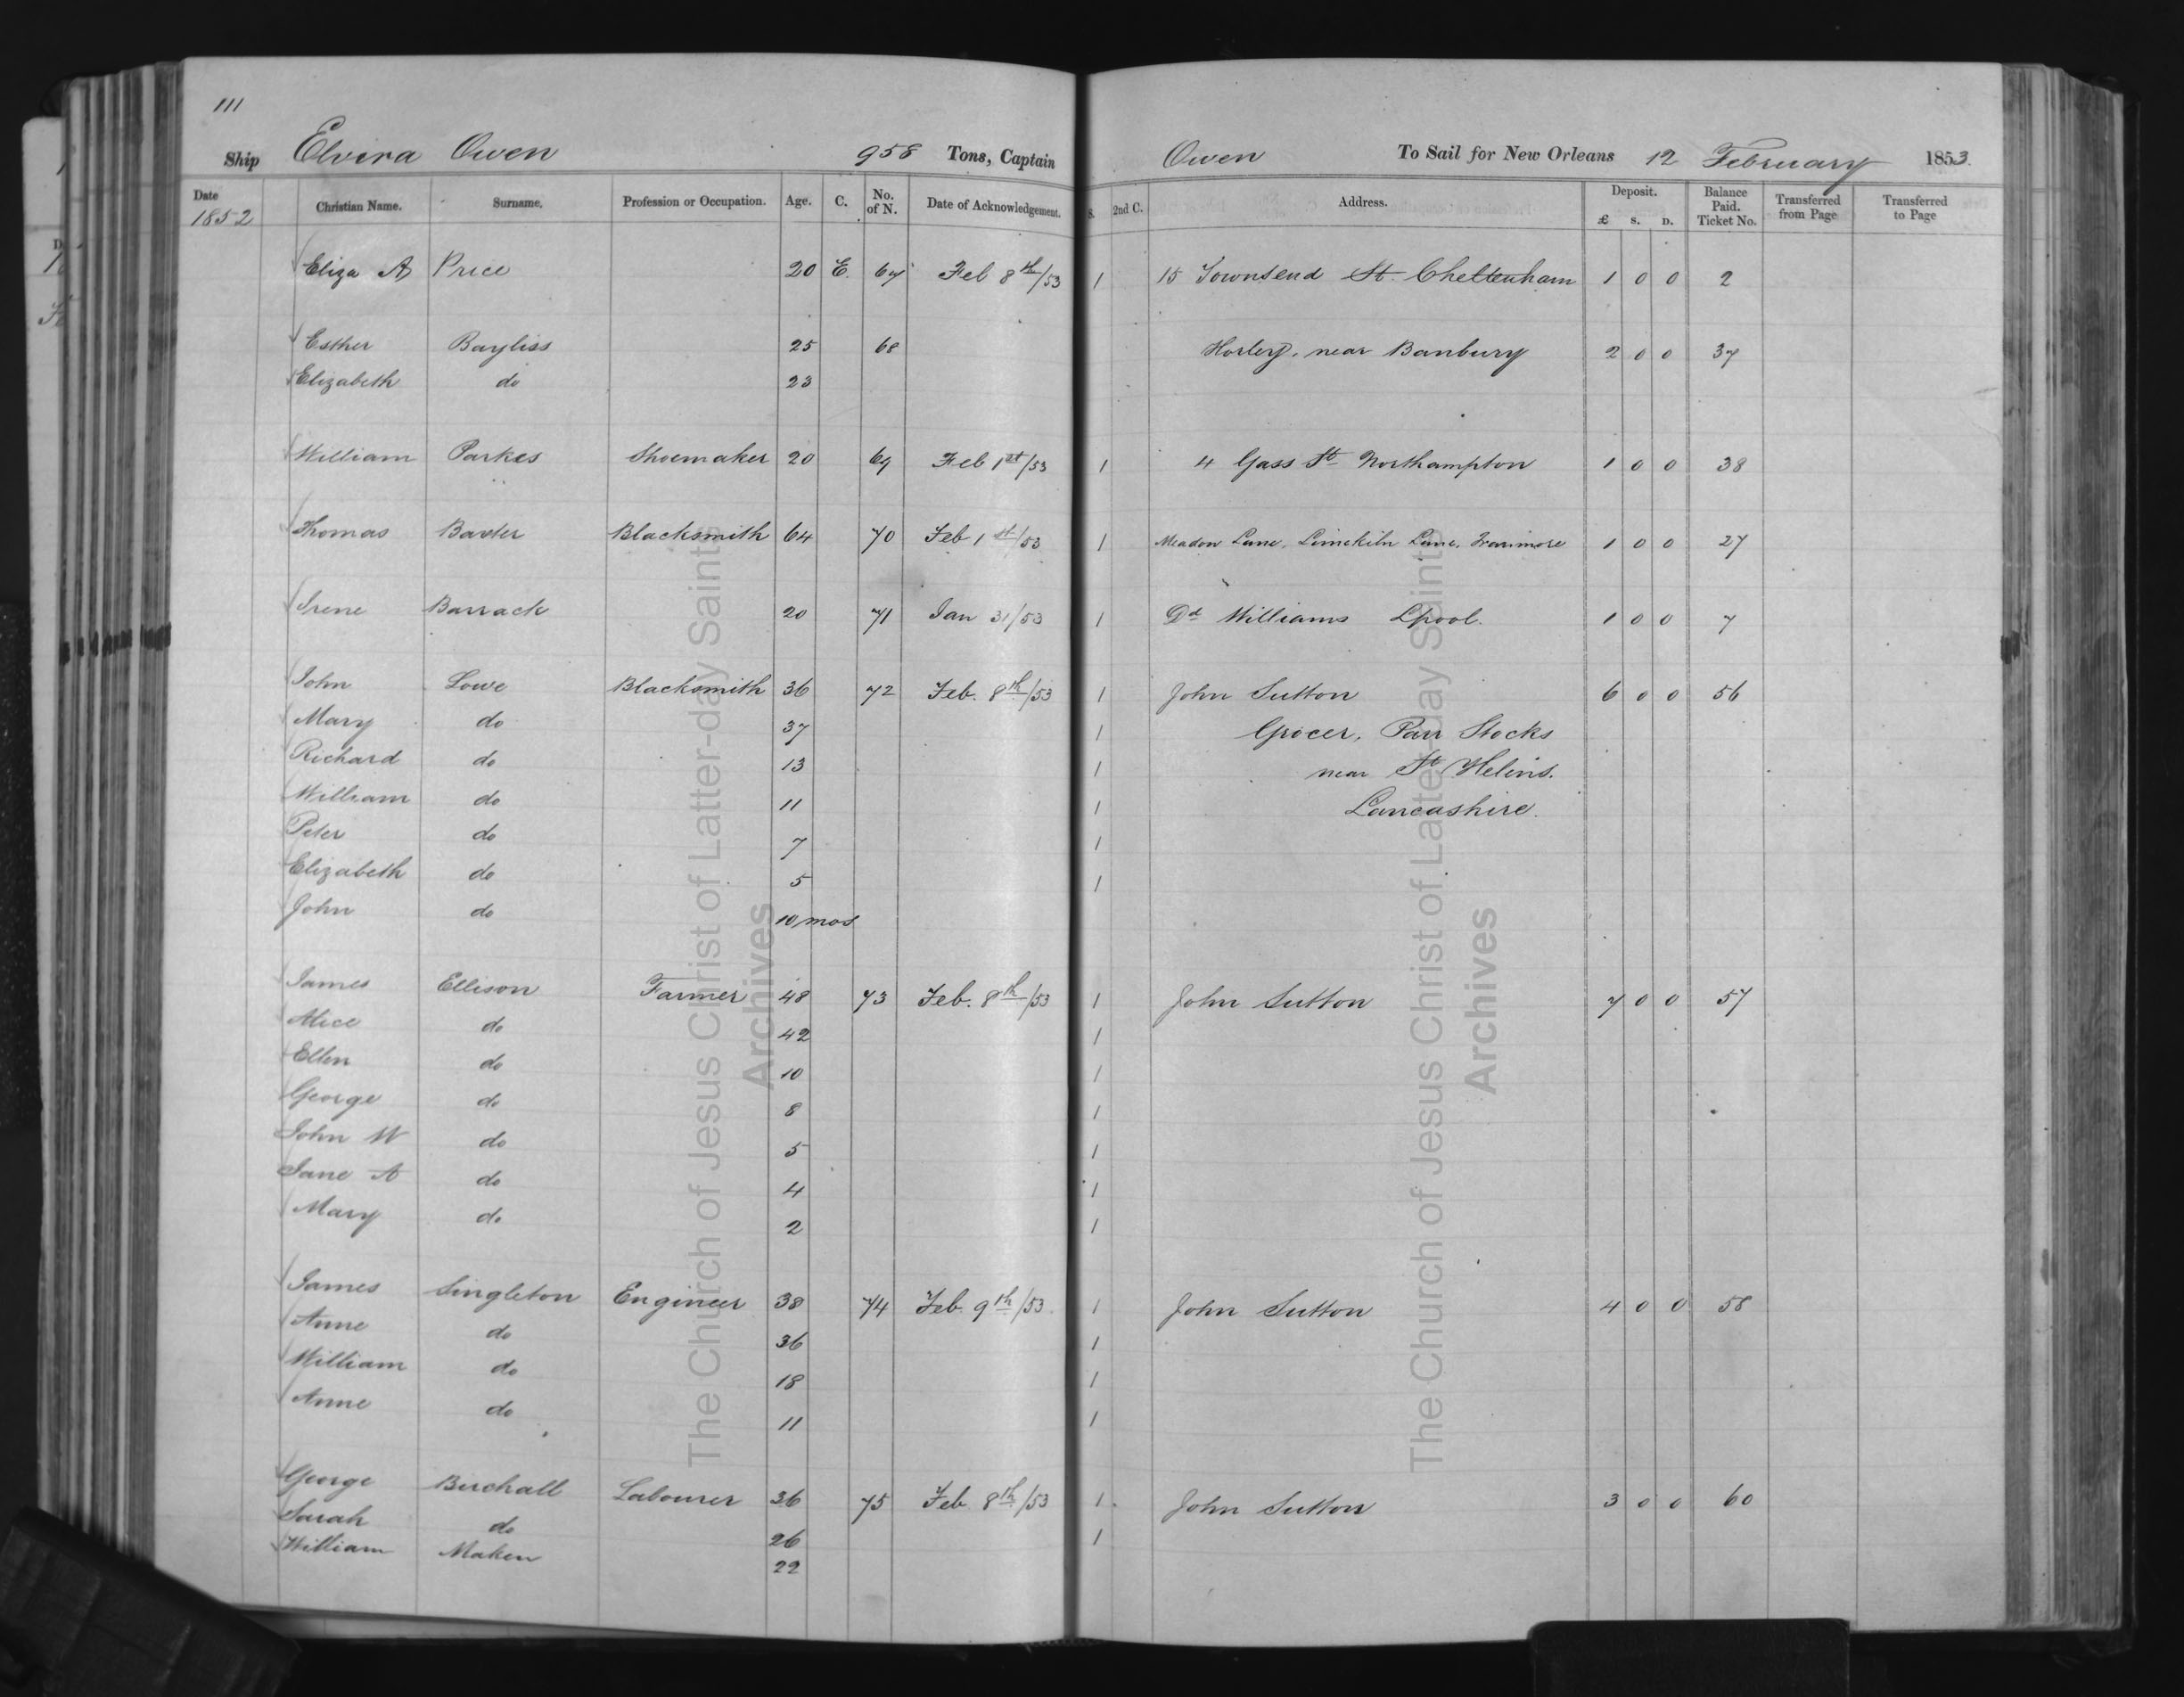 111
Ship Elvira Owen 958 Tons, Captain Owen To Sail for New Orleans 12 February 1853.
Date 1852 Christian Name. Surname. Profession or Occupation. Age. C. No. of N. Date of Acknowledgement. S. 2nd C. Address. Deposit. £ S. D. Balance Paid. Ticket No. Transferred from Page Transferred to Page
Eliza A Price 20 E. 67 Feb 8th/53 1 15 Townsend St. Cheltenham 1 0 0 2
Esther Bayliss 25 68 Horley, near Banbury 2 0 0 37
Elizabeth do 23
William Parkes Shoemaker 20 69 Feb 1st/53 1 4 Gass St Northampton 1 0 0 38
Thomas Baxter Blacksmith 64 70 Feb 1st/53 1 Meadow Lane, Limekiln Lane, 1 0 0 27
Irene Barrack 20 71 Jan 31/53 1 Dd Williams Lpool. 1 0 0 7
John Lowe Blacksmith 36 72 Feb. 8th/53 1 John Sutton 6 0 0 56
Mary do 37 1 Grocer, Parr Stocks
Richard do 13 1 near St Helens.
William do 11 1 Lancashire.
Peter do 7 1
Elizabeth do 5 1
John do 10 mos
James Ellison Farmer 48 73 Feb. 8th/53 1 John Sutton 7 0 0 57
Alice do 42 1
Ellen do 10 1
George do 8 1
John W do 5 1
Jane A do 4 1
Mary do 2 1
James Singleton Engineer 38 74 Feb. 9th/53 1 John Sutton 4 0 0 58
Anne do 36 1
William do 18 1
Anne do 11 1
George Birchall Labourer 36 75 Feb 8th/53 1 John Sutton 3 0 0 60
Sarah do 26 1
William Maken 22
The Church of Jesus Christ of Latter-day Saints
Archives
The Church of Jesus Christ of Latter-day Saints
Archives